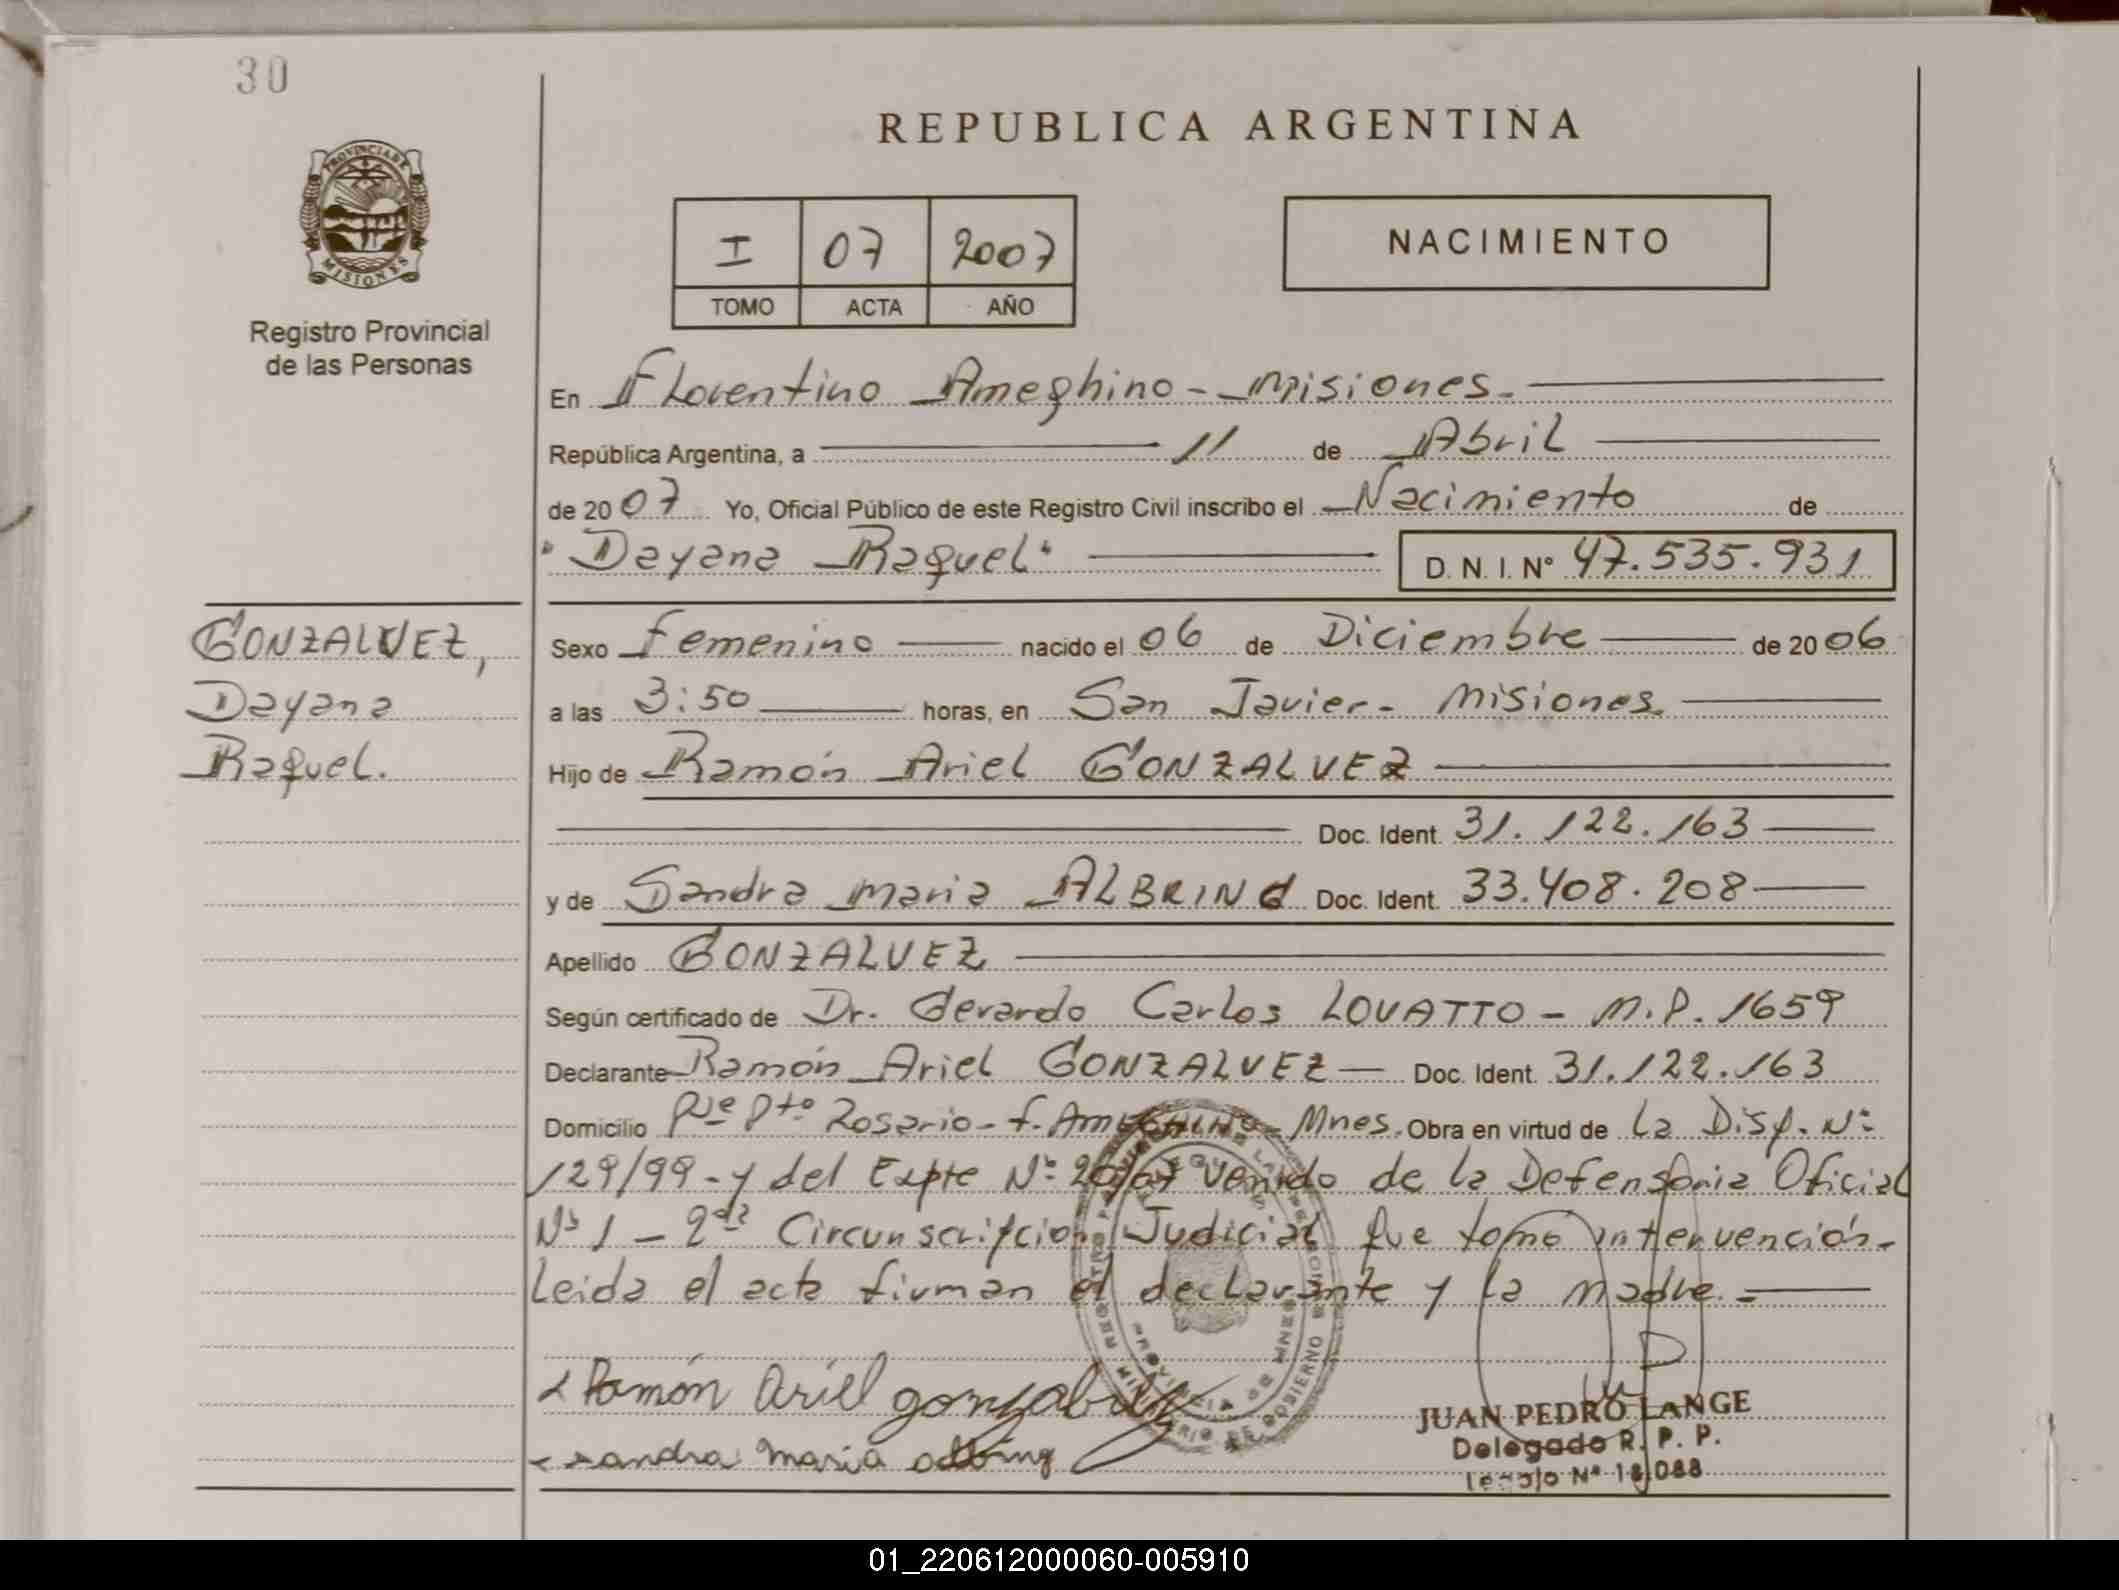 30
REPUBLICA ARGENTINA
PROVINCIA DE
MISIONES
Registro Provincial
de las Personas
I 07 2007
TOMO ACTA AÑO
NACIMIENTO
En Florentino Ameghino - Misiones.
República Argentina, a 11 de Abril
de 2007 Yo, Oficial Público de este Registro Civil inscribo el Nacimiento de
"Dayana Raquel" D. N. I. Nº 47.535.931
GONZALVEZ,
Dayana
Raquel.
Sexo Femenino nacido el 06 de Diciembre de 2006
a las 3:50 horas, en San Javier - Misiones.
Hijo de Ramón Ariel GONZALVEZ
Doc. Ident. 31.122.163
y de Sandra Maria ALBRING Doc. Ident. 33.408.208
Apellido GONZALVEZ
Según certificado de Dr. Gerardo Carlos LOVATTO - M.P. 1659
Declarante Ramón Ariel GONZALVEZ Doc. Ident. 31.122.163
Domicilio Pto Rosario - F. AMEGHINO - Mnes. Obra en virtud de la Disp. Nº
129/99 - y del Expte Nº 20/07 venido de la Defensoria Oficial
Nº 1 - 2da Circunscripcion Judicial que tomó intervención.
Leida el acta firman el declarante y la madre. -
Ramón Ariel gonzalvez
sandra maria albring
JUAN PEDRO LANGE
Delegado R. P. P.
Legajo Nº 18.088
01_220612000060-005910